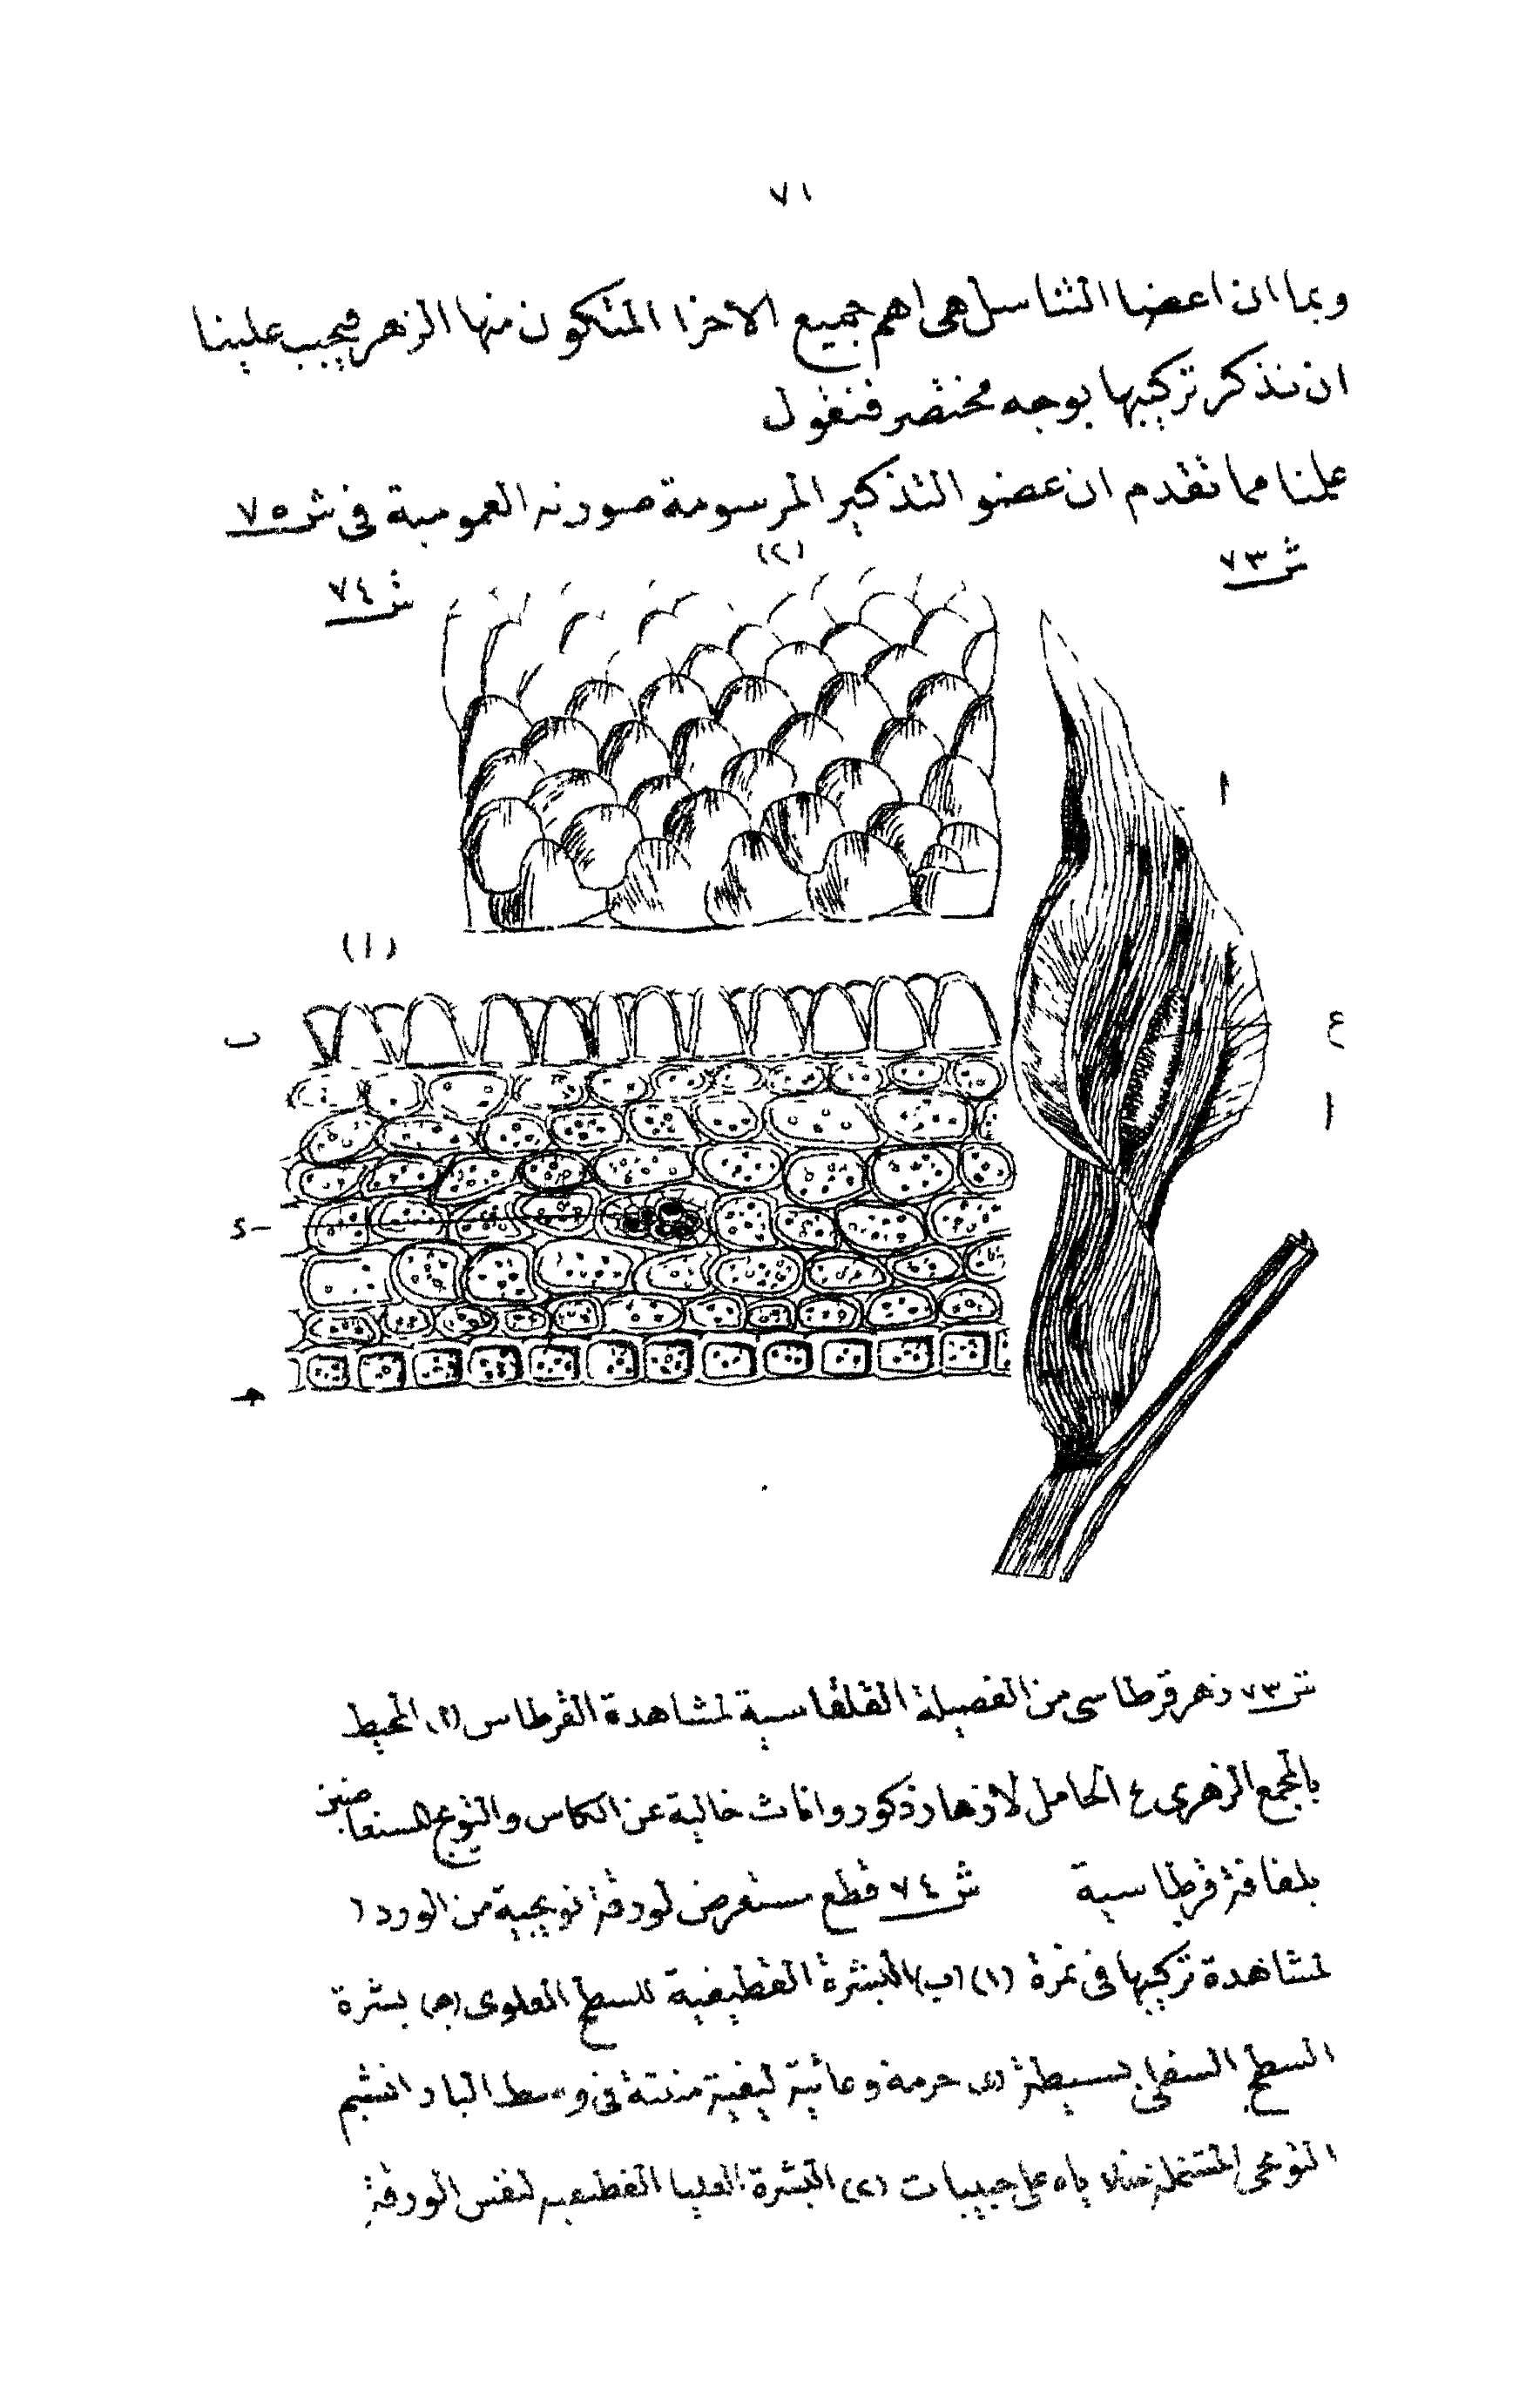 ٧١
وبما ان اعضا التناسل هى اهم جميع الاجزا المتكون منها الزهر فيجب علينا
ان نذكر تركيبها بوجه مختصر فنقول
علمنا مما تقدم ان عضو التذكير المرسومة صورته العمومية فى ش ٧٥
ش ٧٣
(٢)
ش ٧٤
ا
(١)
ب
ع
ا
د
ج
ش ٧٣ زهر قرطاسى من الفصيلة القلقاسية لمشاهدة القرطاس (ا) المحيط
بالمجمع الزهرى ع الحامل لازهار ذكور واناث خالية عن الكاس والتويج
بلفافة قرطاسية ش ٧٤ قطع مستعرض لورقة تويجية من الورد
لمشاهدة تركيبها فى نمرة (١) (ب) البشرة القطيفية للسطح العلوى (ج) بشرة
السطح السفلى بسيطة (د) حزمة وعائية ليفية منبتة فى وسط البارانشيم
التويجى المشتملة خلاياه على حبيبات (٢) البشرة العليا القطيفيه لنفس الورقة